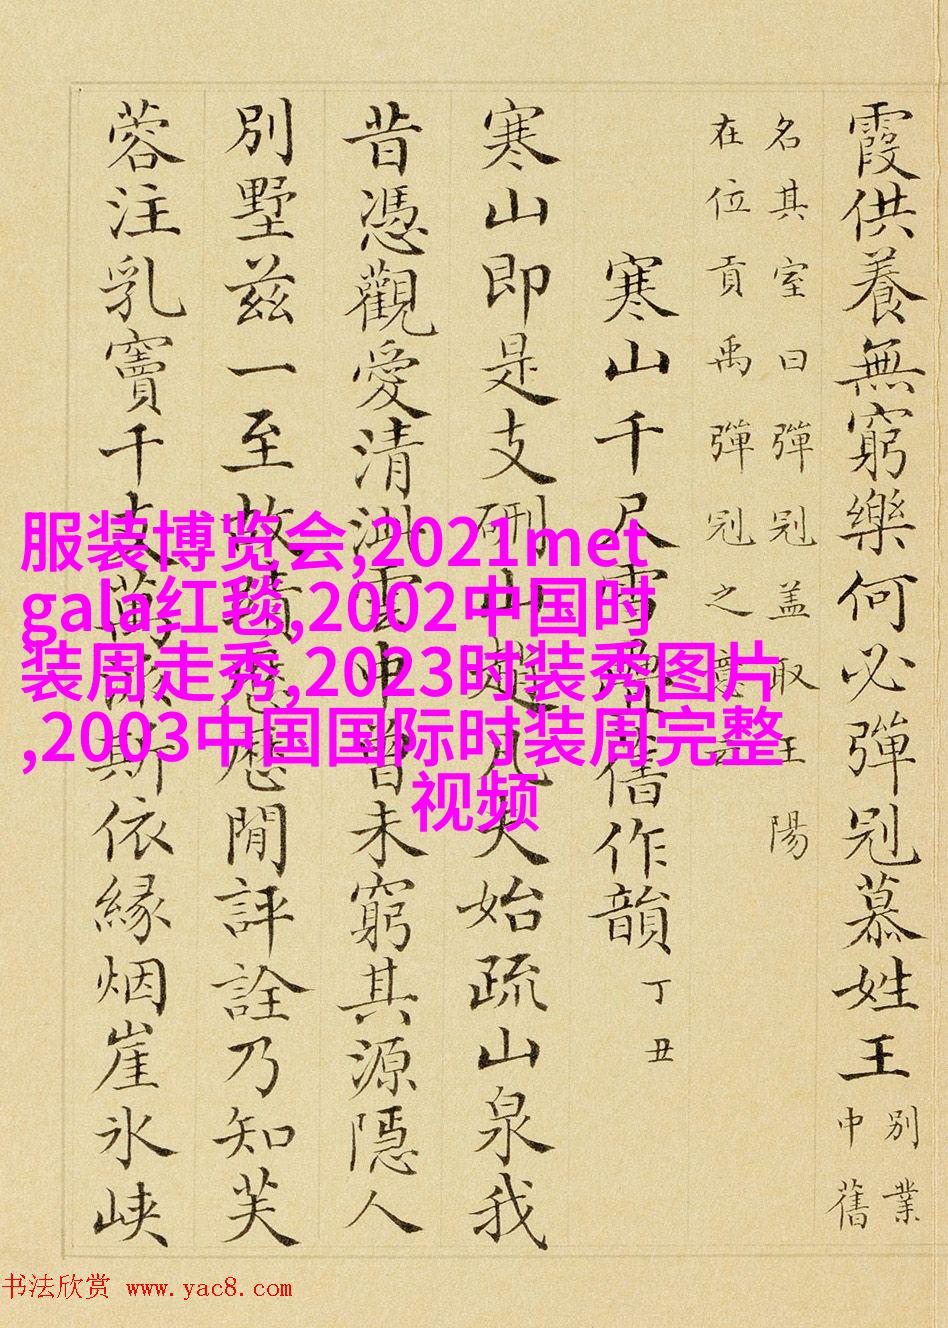 霞供養無窮樂何必彈冠慕姓王
別業
中舊
名其室曰彈冠盖取王陽
在位貢禹彈冠之意云
寒山千尺雪作韻
丁丑
寒山即是支硎山趙凡夫始疏山泉我
昔憑觀愛清雲中曾未窮其源隱人
別墅茲一至故蹟歷閒評詮乃知芙
蓉注乳竇千萬斯依緣烟崖氷峽
服装博览会,2021met
gala红毯,2002中国时
装周走秀,2023时装秀图片
,2003中国国际时装周完整
视频
书法欣赏 www.yac8.com